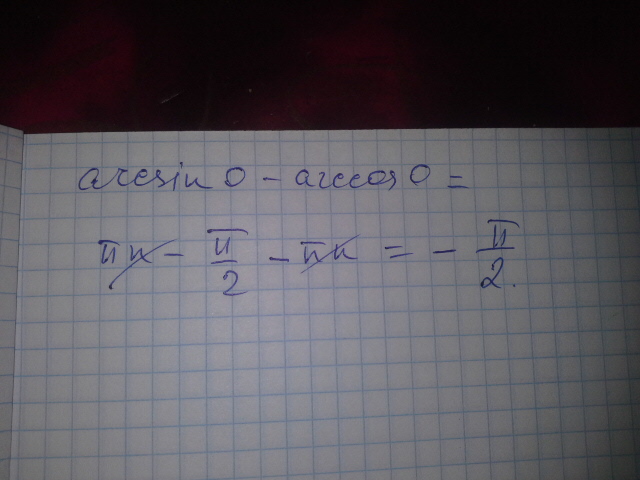 arcsin 0 - arccos 0 =
πn - π/2 - πn = - π/2.